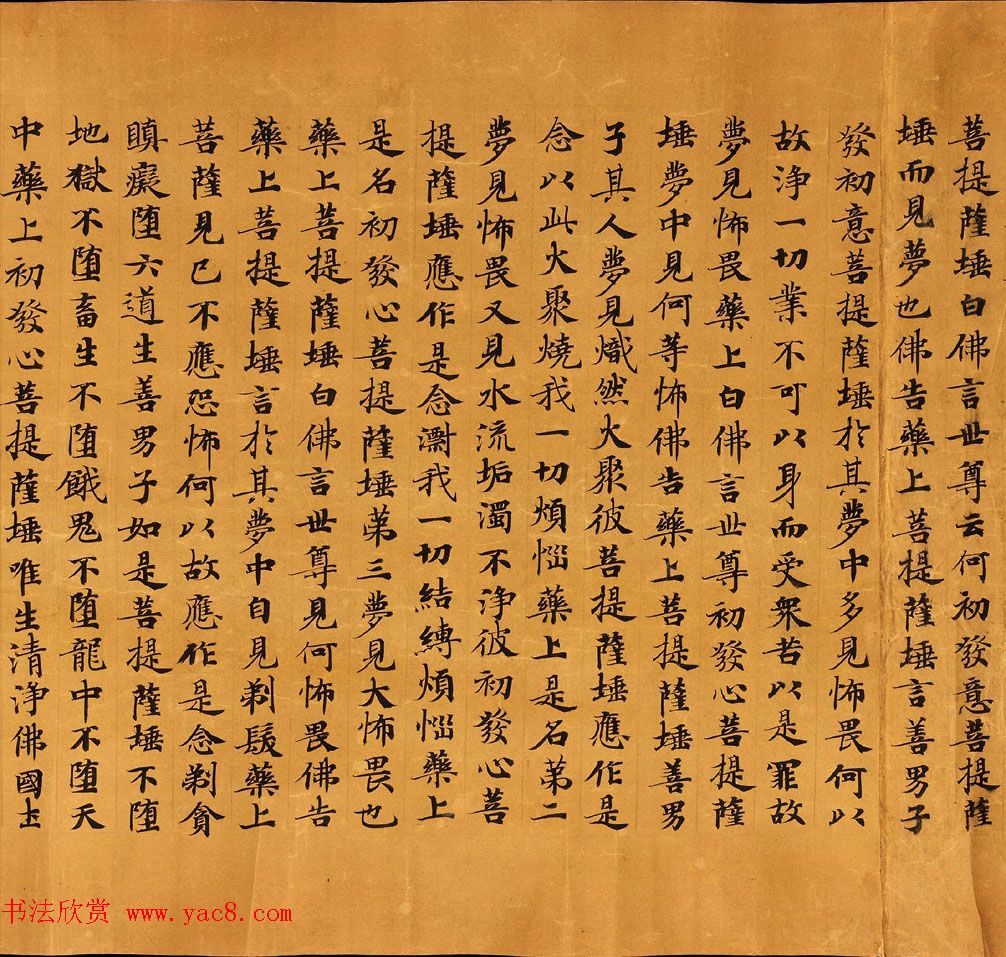 菩提薩埵白佛言世尊云何初發意菩提薩
埵而見夢也佛告藥上菩提薩埵言善男子
發初意菩提薩埵於其夢中多見怖畏何以
故淨一切業不可以身而受衆苦以是罪故
夢見怖畏藥上白佛言世尊初發心菩提薩
埵夢中見何等怖佛告藥上菩提薩埵善男
子其人夢見熾然火聚彼菩提薩埵應作是
念以此火聚燒我一切煩惱藥上是名第二
夢見怖畏又見水流垢濁不淨彼初發心菩
提薩埵應作是念漂我一切結縛煩惱藥上
是名初發心菩提薩埵第三夢見大怖畏也
藥上菩提薩埵白佛言世尊見何怖畏佛告
藥上菩提薩埵言於其夢中自見剃髮藥上
菩薩見已不應恐怖何以故應作是念剃貪
瞋癡墮六道生善男子如是菩提薩埵不墮
地獄不墮畜生不墮餓鬼不墮龍中不墮天
中藥上初發心菩提薩埵唯生清淨佛國土
书法欣赏 www.yac8.com